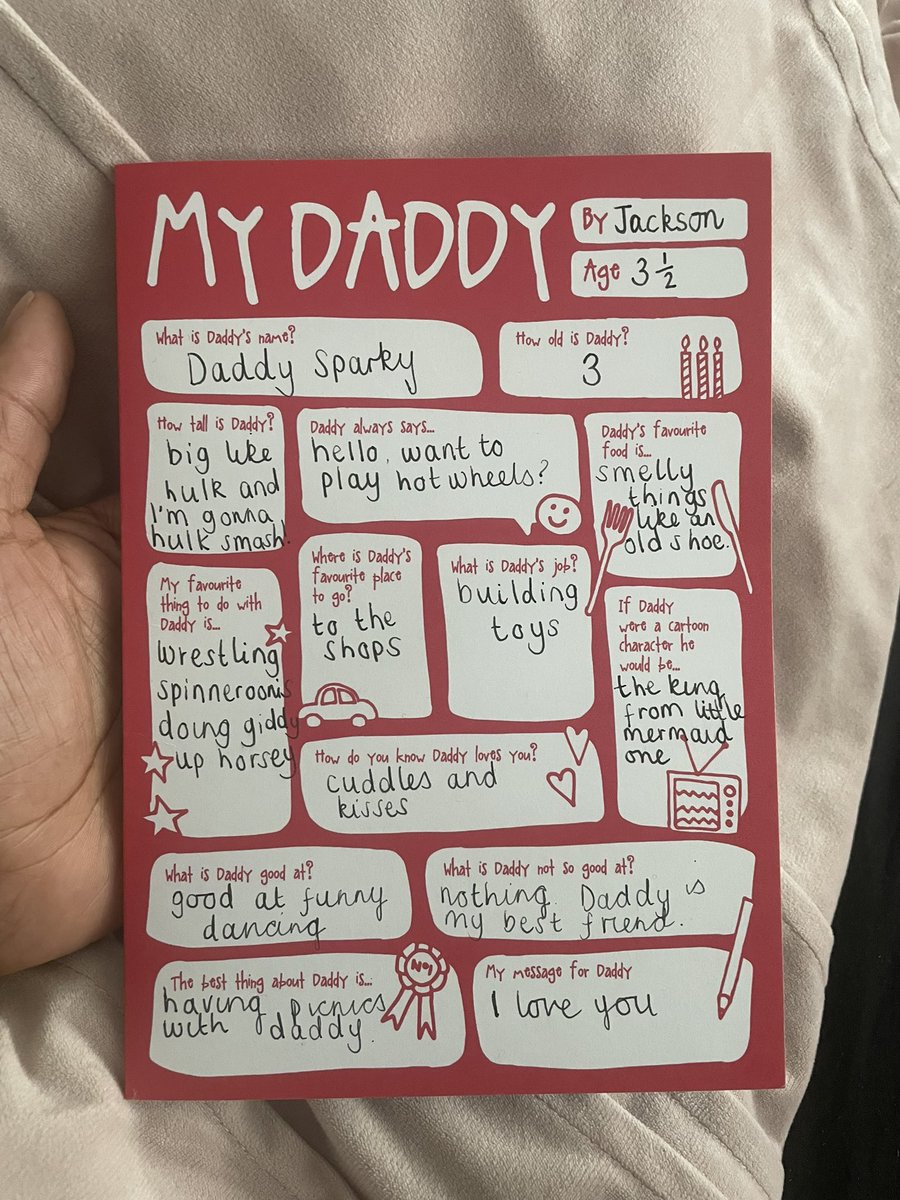 MY DADDY
By Jackson
Age 3 ½
What is Daddy's name?
Daddy Sparky
How old is Daddy?
3
How tall is Daddy?
big like
hulk and
I'm gonna
hulk smash!
Daddy always says...
hello, want to
play hot wheels?
Daddy's favourite
food is...
smelly
things
like an
old shoe.
My favourite
thing to do with
Daddy is...
wrestling
spinneroonis
doing giddy
up horsey
Where is Daddy's
favourite place
to go?
to the
shops
What is Daddy's job?
building
toys
If Daddy
were a cartoon
character he
would be...
the king
from little
mermaid
one
How do you know Daddy loves you?
cuddles and
kisses
What is Daddy good at?
good at funny
dancing
What is Daddy not so good at?
nothing. Daddy is
my best friend.
The best thing about Daddy is...
having picnics
with daddy.
No1
My message for Daddy
I love you